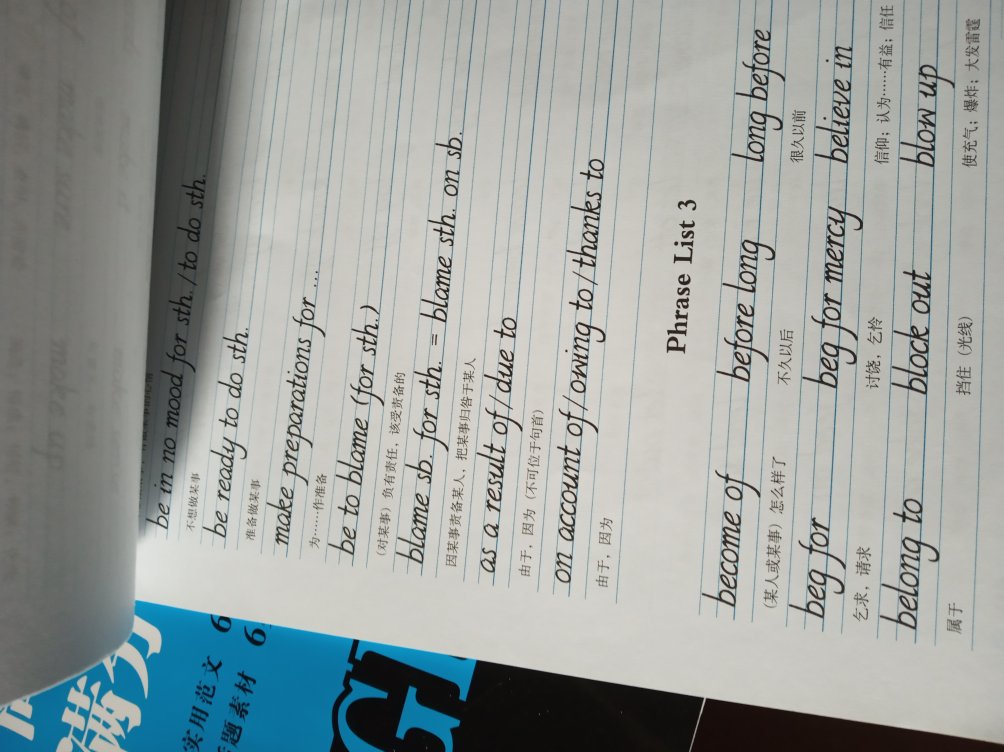 be in no mood for sth./to do sth.
不想做某事
be ready to do sth.
准备做某事
make preparations for ...
为……作准备
be to blame (for sth.)
（对某事）负有责任，该受责备的
blame sb. for sth. = blame sth. on sb.
因某事责备某人，把某事归咎于某人
as a result of/due to
由于，因为（不可位于句首）
on account of/owing to/thanks to
由于，因为
Phrase List 3
become of before long long before
（某人或某事）怎么样了 不久以后 很久以前
beg for beg for mercy believe in
乞求，请求 讨饶，乞怜 信仰；认为……有益；信任
belong to block out blow up
属于 挡住（光线） 使充气；爆炸；大发雷霆
满分
实用范文 6
题素材 6